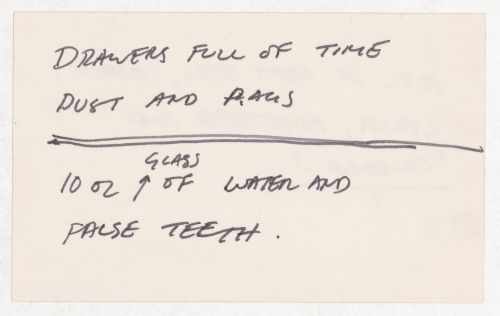 DRAWERS FULL OF TIME
DUST AND RAGS
GLASS
10 OZ ↑ OF WATER AND
FALSE TEETH.